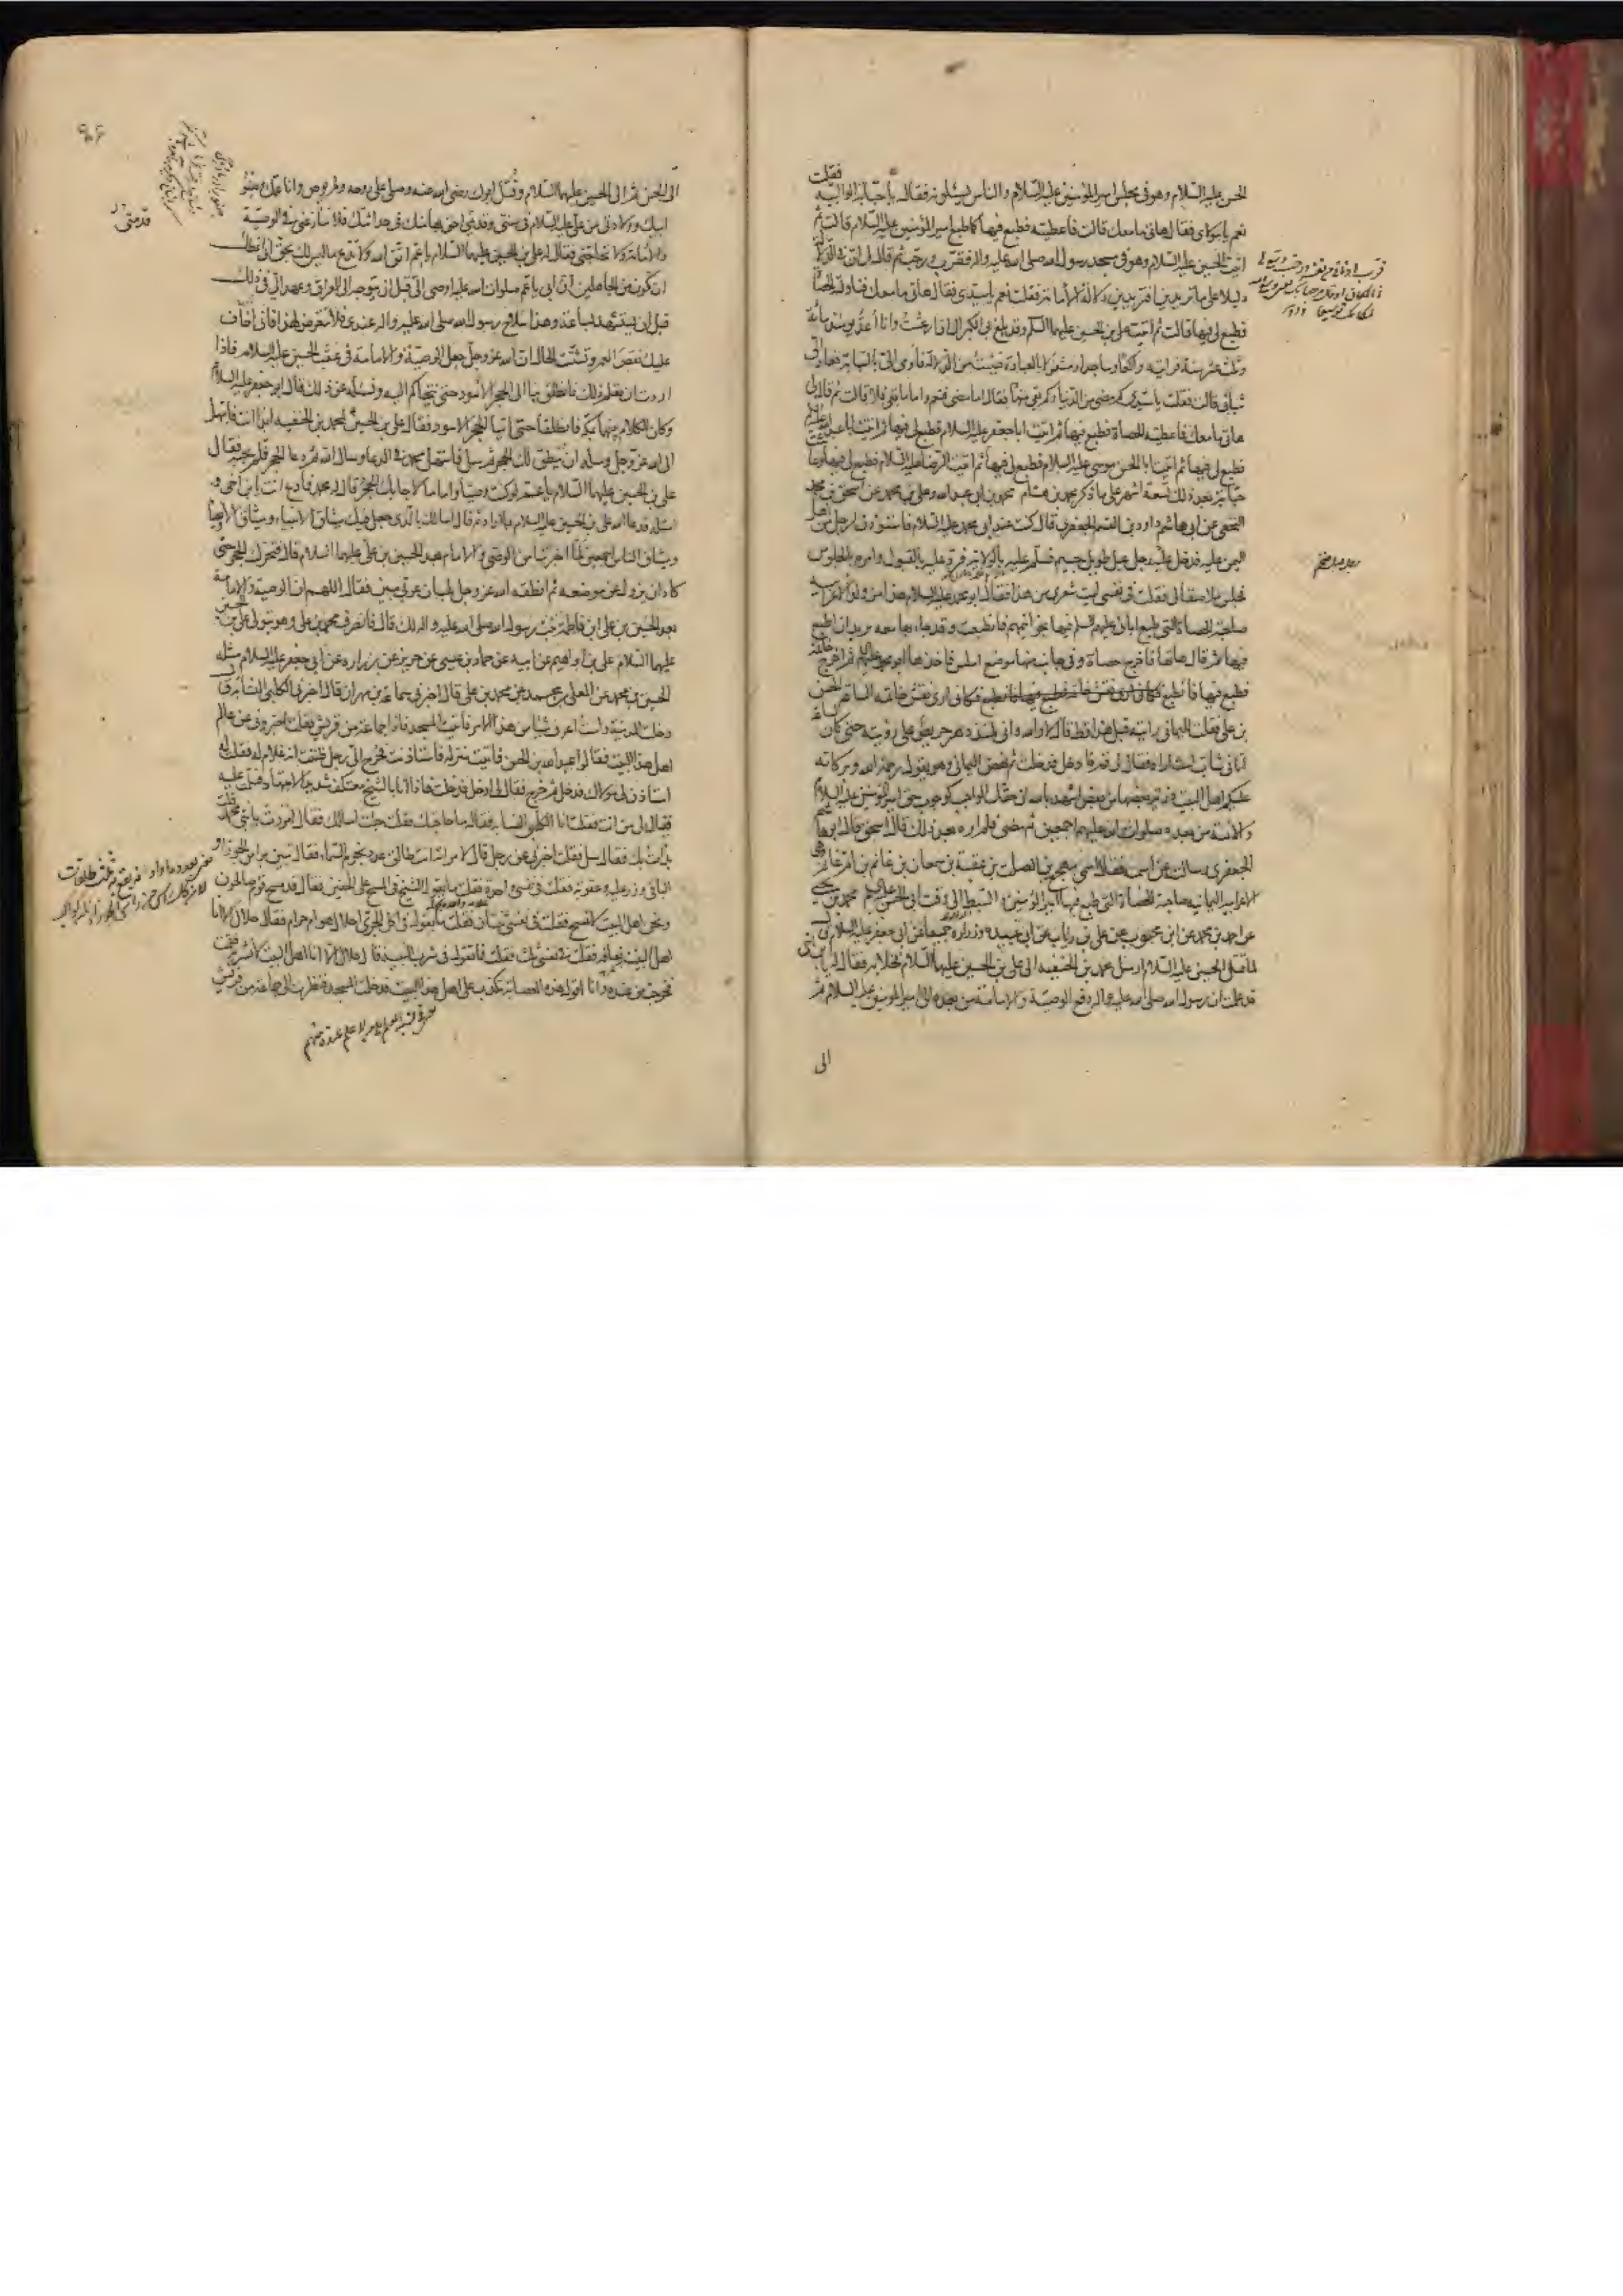 فقلت
الحسن عليه السلام وهو في مجلس امير المؤمنين عليه السلام والناس يسئلونه فقال يا حبابة الوالبيه
نعم يا مولاى فقال هاتى ما معك قالت فاعطيته فطبع فيها كما طبع امير المؤمنين عليه السلام قالت ثم
اتيت الحسين عليه السلام وهو فى مسجد رسول الله صلى الله عليه واله فقرب ورحب ثم قال لى ان فى الدلالة
دليلا على ما تريدين افتريدين دلالة الامامة فقلت نعم يا سيدى فقال هاتى ما معك فناولته الحصاة
فطبع لى فيها قالت ثم اتيت على بن الحسين عليهما السلم وقد بلغ بى الكبر الى ان ارعشت وانا اعد يومئذ مائة
وثلث عشرة سنة فرايته راكعا وساجدا ومشغولا بالعبادة فيئست من الدلالة فاومى الى بالسبابة فعاد الى
شبابى قالت فقلت يا سيدى كم مضى من الدنيا وكم بقى منها فقال اما ما مضى فنعم واما ما بقى فلا قالت ثم قال لى
هاتى ما معك فاعطيته الحصاة فطبع فيها ثم اتيت ابا جعفر عليه السلام فطبع لى فيها ثم اتيت ابا عبد الله عليه السلم
فطبع لى فيها ثم اتيت ابا الحسن موسى عليه السلام فطبع لى فيها ثم اتيت الرضا عليه السلام فطبع لى فيها وعاشت
حبابة بعد ذلك تسعة اشهر على ما ذكر محمد بن هشام محمد بن ابى عبد الله وعلى بن محمد عن اسحق بن محمد
النخعى عن ابى هاشم داود بن القسم الجعفرى قال كنت عند ابى محمد عليه السلام فاستؤذن لرجل من اهل
اليمن عليه فدخل عليه رجل عبل طويل جسيم فسلم عليه بالولاية فرد عليه بالقبول وامره بالجلوس
فجلس ملاصقا لى فقلت فى نفسى ليت شعرى من هذا فقال ابو محمد عليه السلام هذا من ولد الاعرابية
صاحبة الحصاة التى طبع ابائى عليهم السلم فيها بخواتيمهم فانطبعت وقد جاء بها معه يريد ان اطبع
فيها ثم قال هاتها فاخرج حصاة وفى جانب منها موضع املس فاخذها ابو محمد عليه السلم ثم اخرج خاتمه
فطبع فيها فانطبع فكانى ارى نقش خاتمه الساعة الحسن
بن على فقلت لليمانى رايته قبل هذا قط قال لا والله وانى لمنذ دهر حريص على رؤيته حتى كان الساعة
اتانى شاب لست اراه فقال لى قم فادخل فدخلت ثم نهض اليمانى وهو يقول رحمة الله وبركاته
عليكم اهل البيت ذرية بعضها من بعض اشهد بالله ان حقك لواجب كوجوب حق امير المؤمنين عليه السلام
والائمة من بعده صلوات الله عليهم اجمعين ثم مضى فلم اره بعد ذلك قال اسحق قال ابو هاشم
الجعفرى وسالته عن اسمه فقال اسمى مهجع بن الصلت بن عقبة بن سمعان بن غانم بن ام غانم وهى
الاعرابية اليمانية صاحبة الحصاة التى طبع فيها امير المؤمنين والسبط الى وقت ابى الحسن عليه السلم محمد بن يحيى
عن احمد بن محمد عن ابن محبوب عن على بن رئاب عن ابى عبيدة وزرارة جميعا عن ابى جعفر عليه السلام قال
لما قتل الحسين عليه السلام ارسل محمد بن الحنفيه الى على بن الحسين عليهما السلام فخلا به فقال له يا بن اخى
قد علمت ان رسول الله صلى الله عليه واله دفع الوصية والامامة من بعده الى امير المؤمنين عليه السلام ثم
الى
الى الحسن ثم الى الحسين عليهما السلام وقتل ابوك رضى الله عنه وصلى على روحه ولم يوص وانا عمك وصنو
ابيك وولادتى من على عليه السلام فى سنى وقدمتى احق بها منك فى حداثتك فلا تنازعنى فى الوصية
والامامة ولا تحاجنى فقال له على بن الحسين عليهما السلام يا عم اتق الله ولا تدع ما ليس لك بحق انى اعظك
ان تكون من الجاهلين ان ابى يا عم صلوات الله عليه اوصى الى قبل ان يتوجه الى العراق وعهد الى فى ذلك
قبل ان يستشهد بساعة وهذا سلاح رسول الله صلى الله عليه واله عندى فلا تتعرض لهذا فانى اخاف
عليك نقص العمر وتشتت الحال ان الله عز وجل جعل الوصية والامامة فى عقب الحسين عليه السلام فاذا
اردت ان تعلم ذلك فانطلق بنا الى الحجر الاسود حتى نتحاكم اليه ونسئله عن ذلك قال ابو جعفر عليه السلام
وكان الكلام بينهما بمكة فانطلقا حتى اتيا الحجر الاسود فقال على بن الحسين لمحمد بن الحنفيه ابدا انت فابتهل
الى الله عز وجل وسله ان ينطق لك الحجر ثم سل فابتهل محمد فى الدعاء وسال الله ثم دعا الحجر فلم يجبه فقال
على بن الحسين عليهما السلام يا عم لو كنت وصيا واماما لاجابك الحجر قال له محمد فادع انت يا بن اخى و
اسئله فدعا الله على بن الحسين عليه السلام بما اراد ثم قال اسالك بالذى جعل فيك ميثاق الانبياء وميثاق الاوصياء
وميثاق الناس اجمعين لما اخبرتنا من الوصى والامام بعد الحسين بن على عليهما السلام قال فتحرك الحجر حتى
كاد ان يزول عن موضعه ثم انطقه الله عز وجل بلسان عربى مبين فقال اللهم ان الوصية والامامة
بعد الحسين بن على ابن فاطمة بنت رسول الله صلى الله عليه واله لك قال فانصرف محمد بن على وهو يتولى على بن الحسين
عليهما السلام على بن ابراهيم عن ابيه عن حماد بن عيسى عن حريز عن زراره عن ابى جعفر عليه السلام مثله
الحسين بن محمد عن المعلى بن محمد عن محمد بن على قال اخبرنى سماعة بن مهران قال اخبرنى الكلبى النسابة قال
دخلت المدينة ولست اعرف شيئا من هذا الامر فاتيت المسجد فاذا جماعة من قريش فقلت اخبرونى عن عالم
اهل هذا البيت فقالوا عبد الله بن الحسن فاتيت منزله فاستاذنت فخرج الى رجل ظننت انه غلام له فقلت له
استاذن لى مولاك فدخل ثم خرج فقال لى ادخل فدخلت فاذا انا بالشيخ معتكف شديد الاجتهاد فسلمت عليه
فقال لى من انت فقلت انا الكلبى النسابه فقال ما حاجتك فقلت جئت اسالك فقال امررت بابنى محمد قلت
بدات بك فقال سل فقلت اخبرنى عن رجل قال لامراته انت طالق عدد نجوم السماء فقال تبين براس الجوزاء و
الباقى وزر عليه وعقوبة فقلت فى نفسى واحدة فقلت ما يقول الشيخ فى المسح على الخفين فقال قد مسح قوم صالحون
ونحن اهل البيت لا نمسح فقلت فى نفسى ثنتان فقلت ما تقول فى اكل الجرى احلال هو ام حرام فقال حلال الا انا
اهل البيت نعافه فقلت فى نفسى ثلث فقلت فما تقول فى شرب النبيذ قال حلال الا انا اهل البيت لا نشربه فقمت
فخرجت من عنده وانا اقول هذه العصابة تكذب على اهل هذا البيت فدخلت المسجد فنظرت الى جماعة من قريش
قدمتى